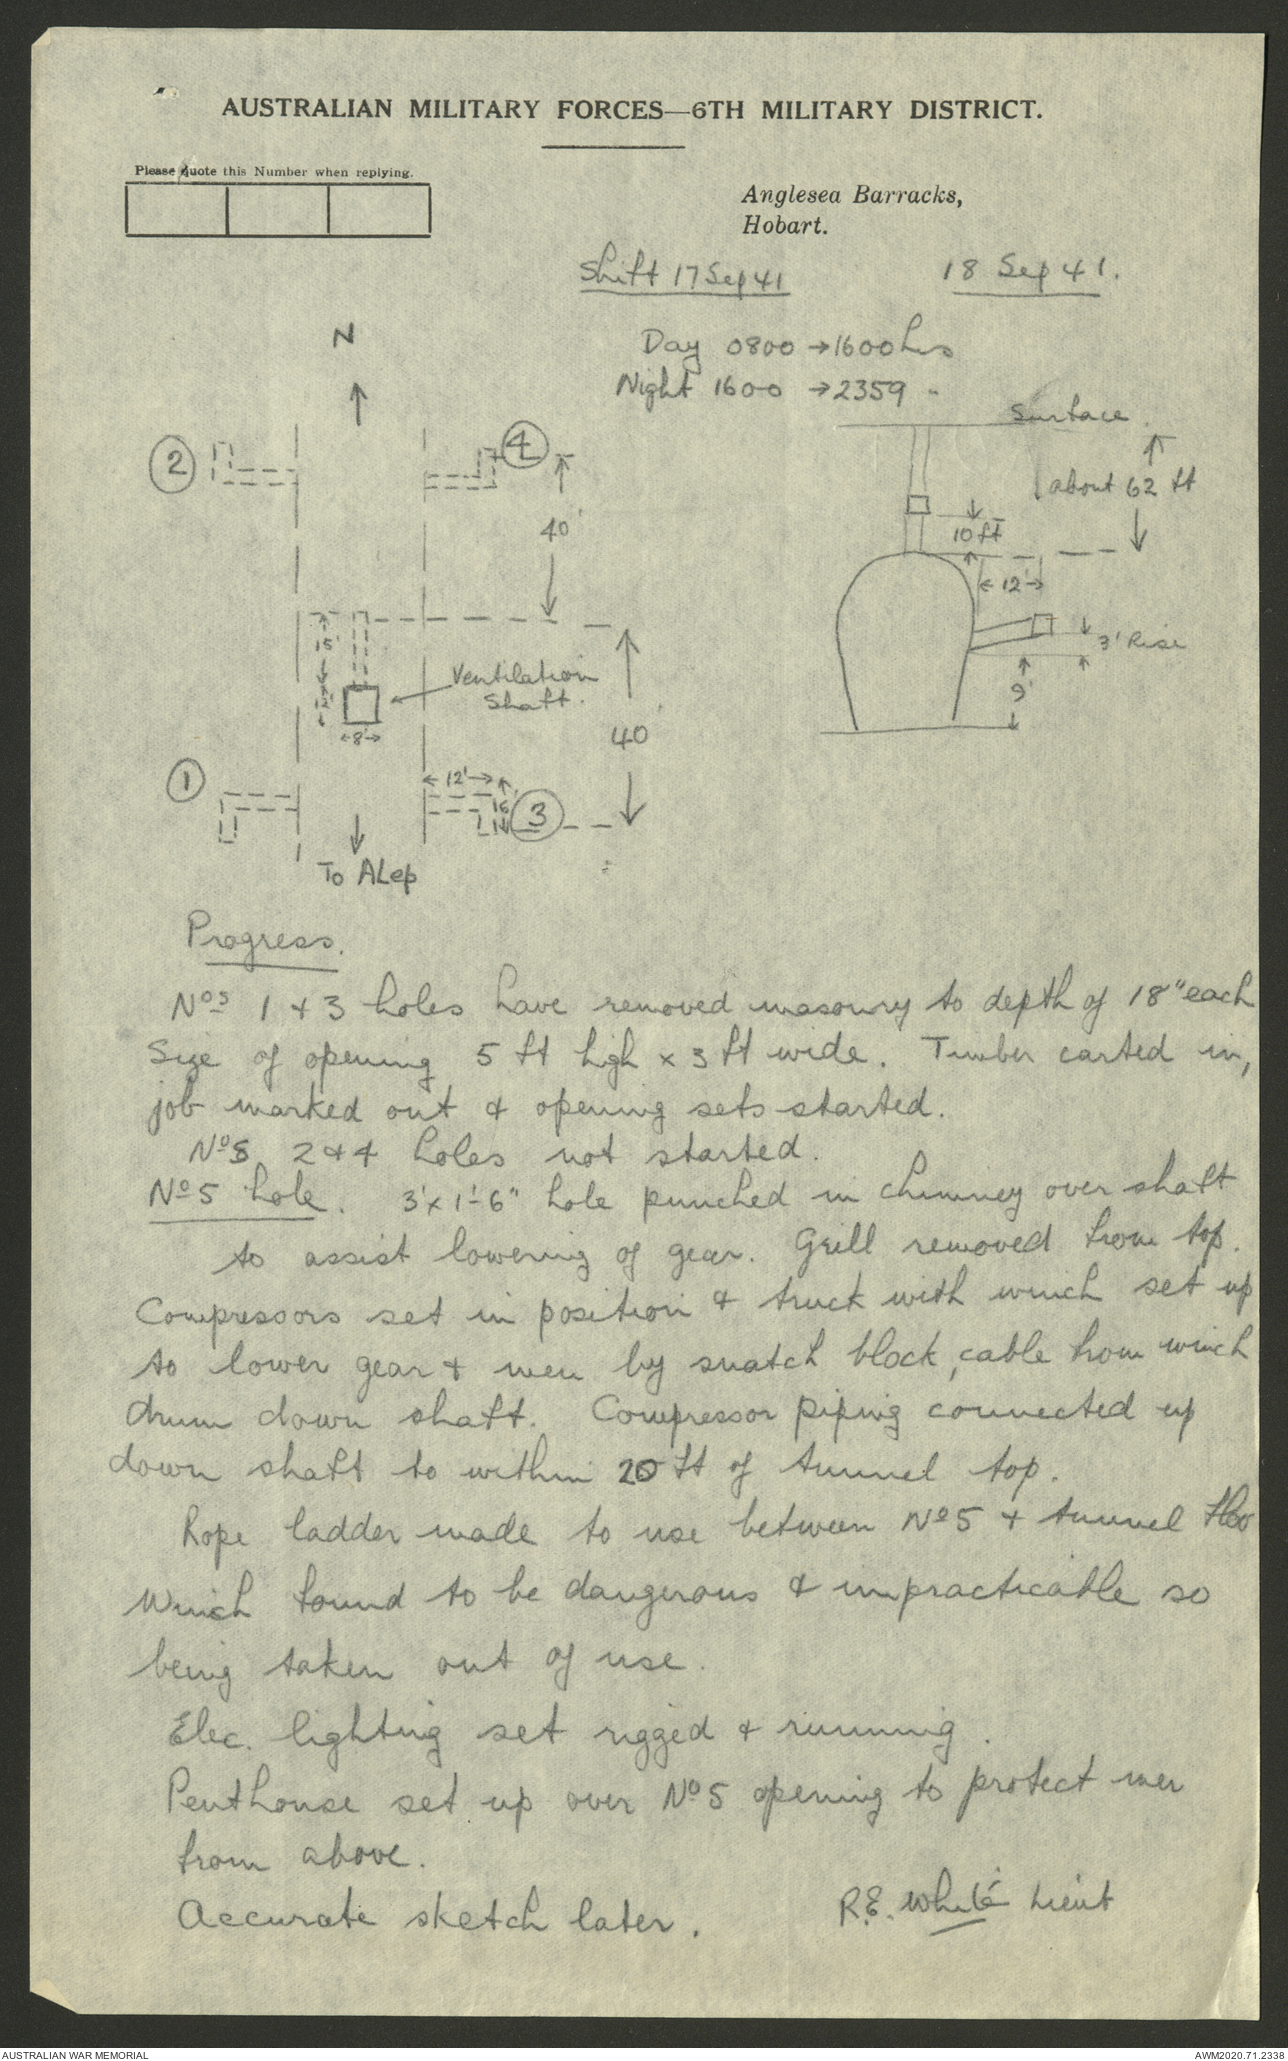 AUSTRALIAN MILITARY FORCES—6TH MILITARY DISTRICT.
Please quote this Number when replying.
Anglesea Barracks,
Hobart.
Shift 17 Sep 41
18 Sep 41.
Day 0800 → 1600 hrs
Night 1600 → 2359 "
N
2
4
40'
15'
12'
8'
Ventilation
Shaft.
40'
1
12'
16'
3
To ALep
Surface
about 62 ft
10 ft
12'
3' Rise
9'
Progress.
Nos 1 & 3 holes have removed masonry to depth of 18" each
Size of opening 5 ft high x 3 ft wide. Timber carted in,
job marked out & opening sets started.
Nos 2 & 4 holes not started.
No 5 hole. 3' x 1'-6" hole punched in chimney over shaft
to assist lowering of gear. Grill removed from top.
Compressors set in position & truck with winch set up
to lower gear & men by snatch block, cable from winch
drum down shaft. Compressor piping connected up
down shaft to within 20 ft of tunnel top.
Rope ladder made to use between No 5 & tunnel floo
Winch found to be dangerous & impracticable so
being taken out of use.
Elec. lighting set rigged & running.
Penthouse set up over No 5 opening to protect men
from above.
Accurate sketch later.
R.E. White Lieut
AUSTRALIAN WAR MEMORIAL
AWM2020.71.2338